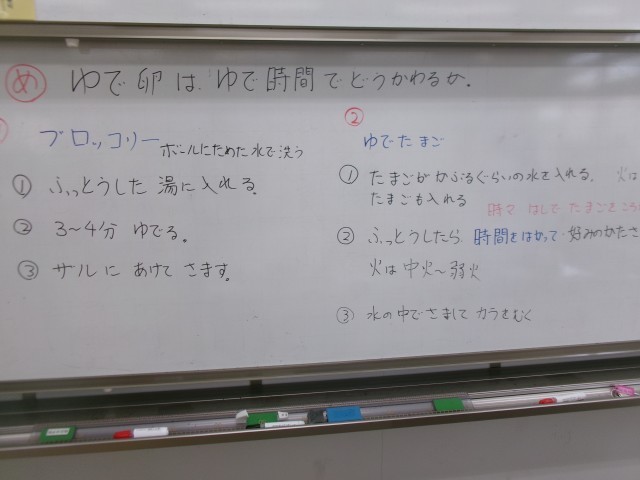 め ゆで卵は、ゆで時間でどうかわるか。
ブロッコリー ボールにためた水で洗う
① ふっとうした湯に入れる。
② 3〜4分 ゆでる。
③ ザルに あけて さます。
②
ゆでたまご
① たまごがかぶるぐらいの水を入れる。 火は
たまごも入れる
時々 はしで たまごをころ
② ふっとうしたら 時間をはかって 好みのかたさ
火は中火〜弱火
③ 水の中でさまして カラをむく